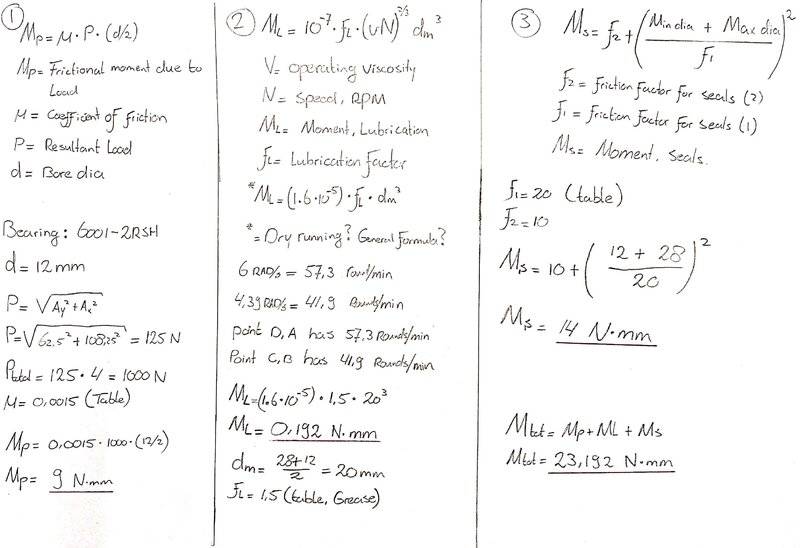 ①
Mp = μ · P · (d/2)
Mp = Frictional moment due to
Load
μ = Coefficient of friction
P = Resultant Load
d = Bore dia
Bearing: 6001-2RSH
d = 12 mm
P = √(Ay² + Ax²)
P = √(62.5² + 108,25²) = 125 N
Ptotal = 125 · 4 = 1000 N
μ = 0,0015 (Table)
Mp = 0,0015 · 1000 · (12/2)
Mp = 9 N·mm
②
ML = 10⁻⁷ · fL · (υN)^2/3 dm³
V = operating Viscosity
N = Speed, RPM
ML = Moment, Lubrication
fL = Lubrication Factor
*ML = (1.6·10⁻⁵) · fL · dm³
* = Dry running? General Formula?
6 RAD/s = 57,3 /min
4,39 RAD/s = 41,9 Rounds/min
point D, A has 57,3 Rounds/min
Point C, B has 41,9 Rounds/min
ML = (1.6·10⁻⁵) · 1,5 · 20³
ML = 0,192 N·mm
dm = (28+12)/2 = 20mm
fL = 1,5 (table, Grease)
③
Ms = f2 + ((Min dia + Max dia)/f1)²
f2 = friction factor for seals (2)
f1 = friction factor for seals (1)
Ms = Moment, seals.
f1 = 20 (table)
f2 = 10
Ms = 10 + ((12 + 28)/20)²
Ms = 14 N·mm
Mtot = Mp + ML + Ms
Mtot = 23,192 N·mm